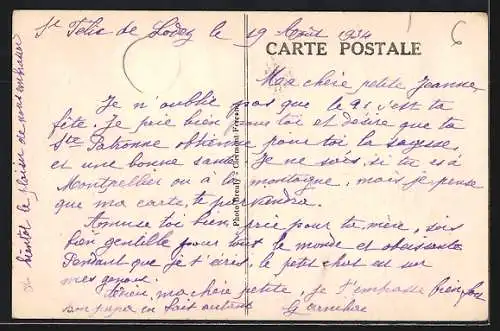 St Felix de Lodez le 19 Août 1934
CARTE POSTALE
6
Ma chère petite Jeanne,
Je n'oublie pas que le 21 c'est ta
fête. Je prie bien pour toi et désire que ta
Ste Patronne obtienne pour toi la sagesse,
et une bonne santé. Je ne sais, si tu es à
Montpellier ou à la montagne, mais je pense
que ma carte, te parviendra.
Amuse toi bien, prie pour ta mère, sois
bien gentille pour tout le monde et obéissante
Pendant que je t'écris, le petit chat est sur
mes genoux.
ma chère petite, je t'embrasse bien fort
ton papa en fait autant
bientôt le plaisir de vous embrasser
Photo Clermont Ferrand